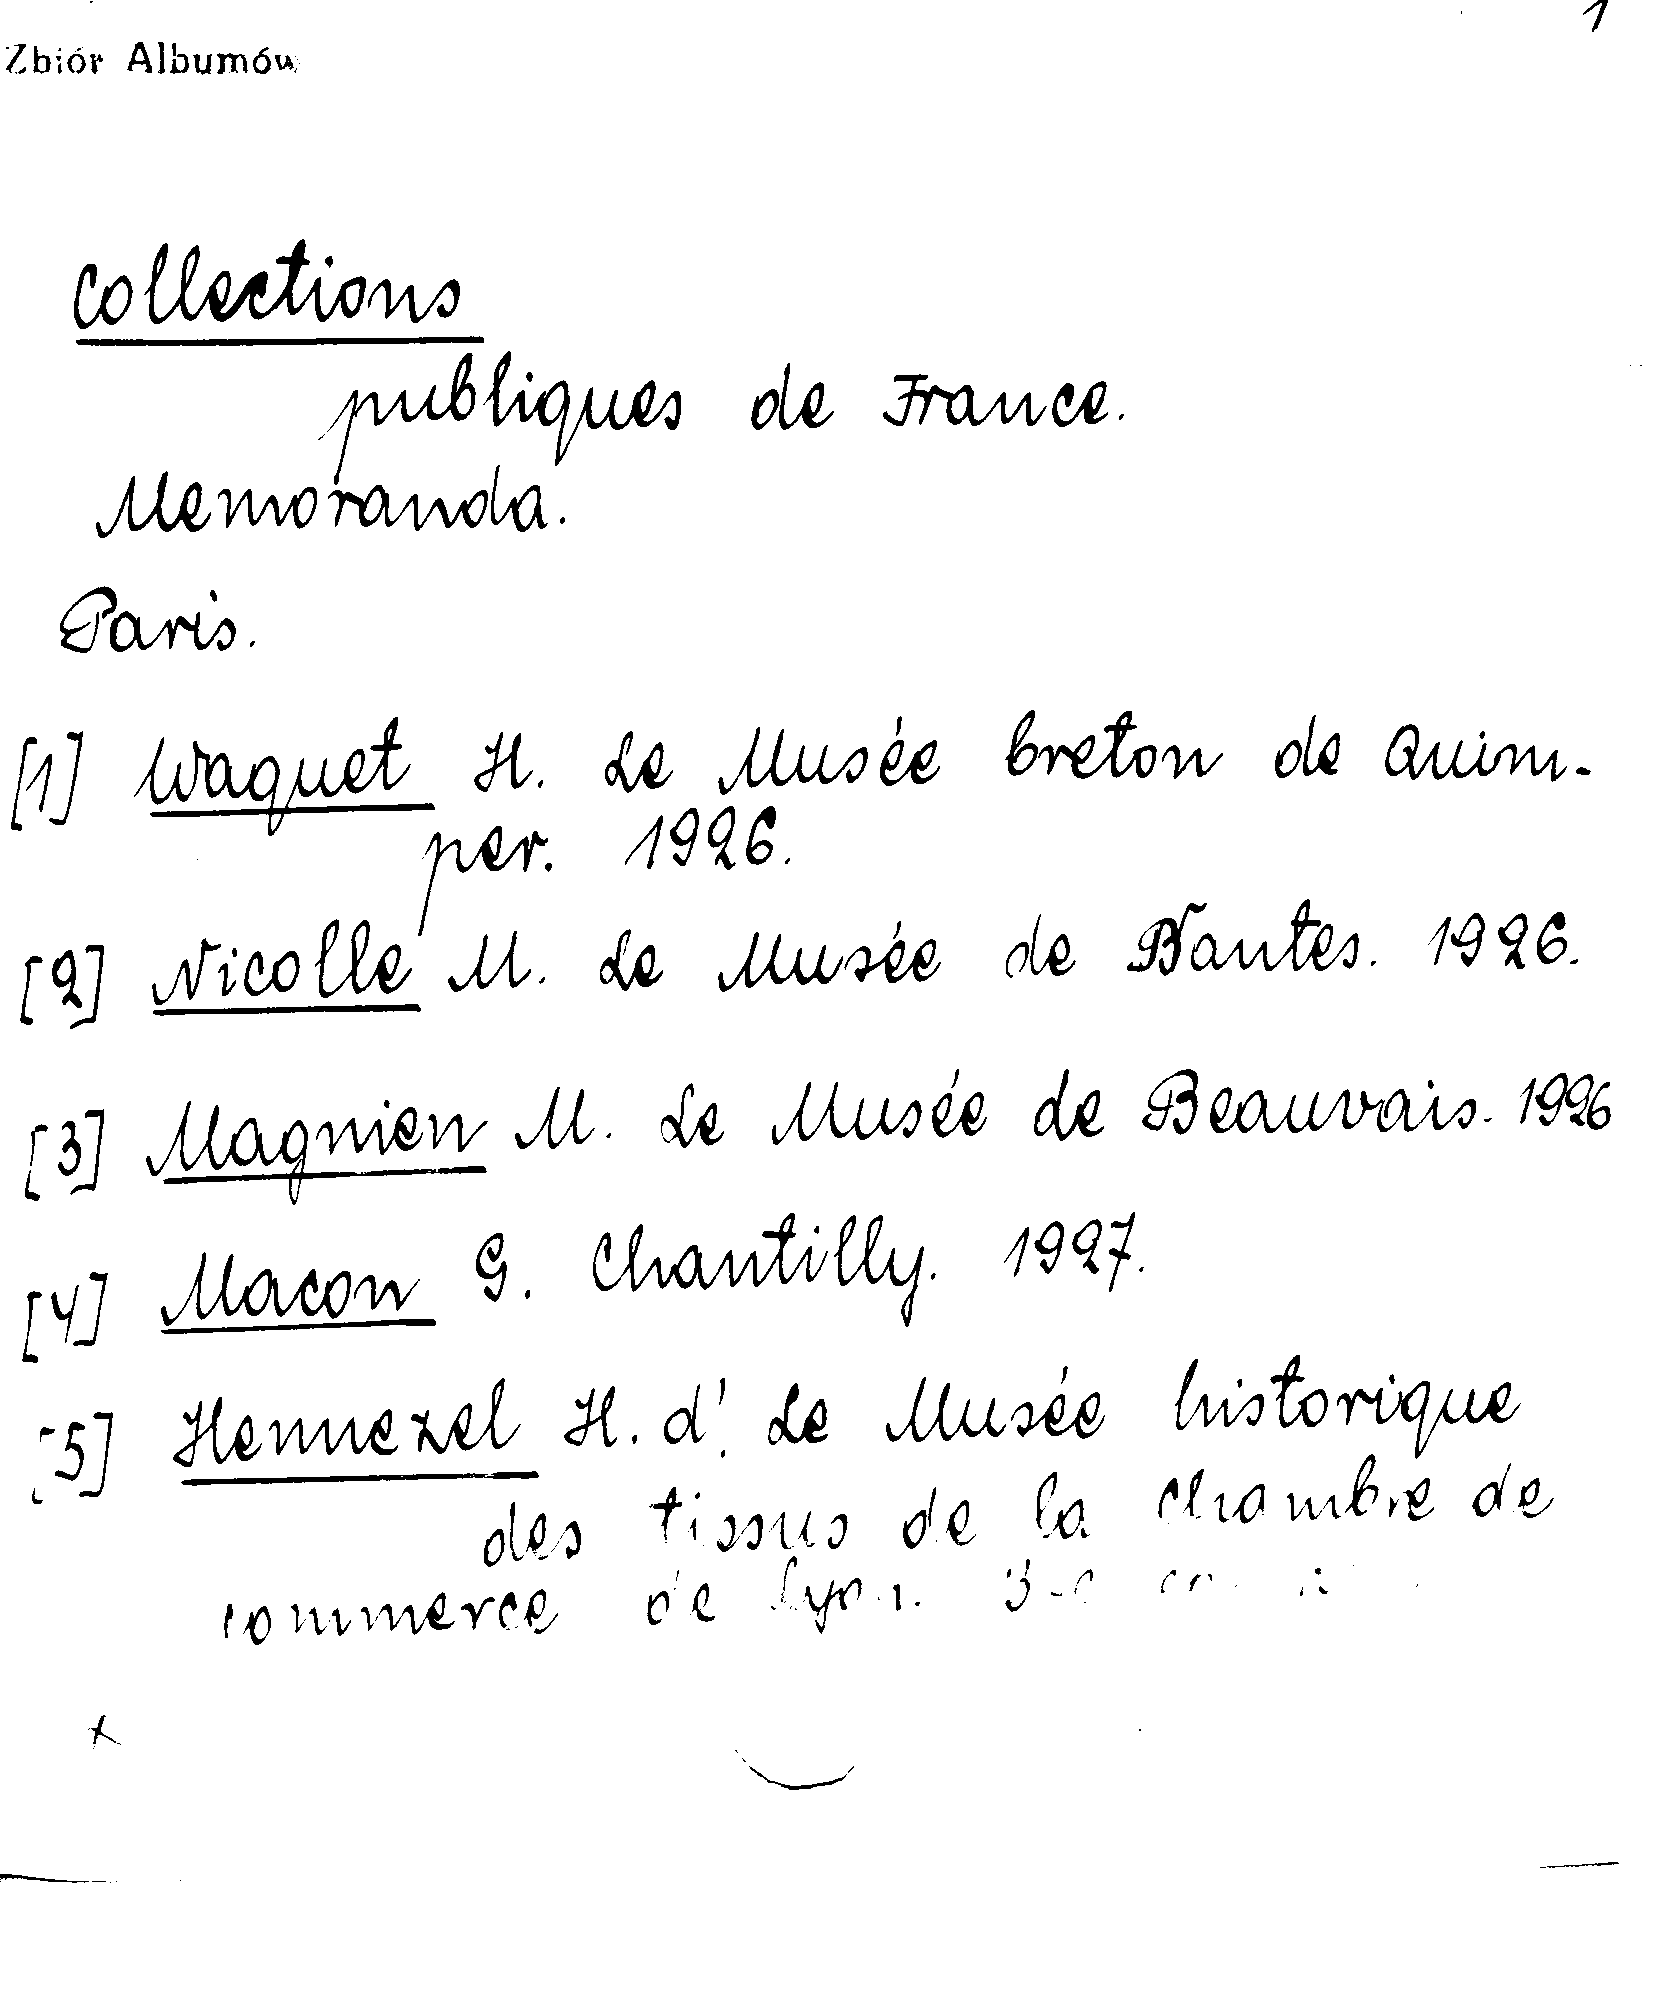 1
Zbiór Albumów
Collections
publiques de France.
Memoranda.
Paris.
[1] Waquet H. Le Musée breton de Quim-
per. 1926.
[2] Nicolle M. Le Musée de Nantes. 1926.
[3] Magnien M. Le Musée de Beauvais. 1926
[4] Macon G. Chantilly. 1927.
[5] Hennezel H. d'. Le Musée historique
des tissus de la Chambre de
commerce de Lyon.